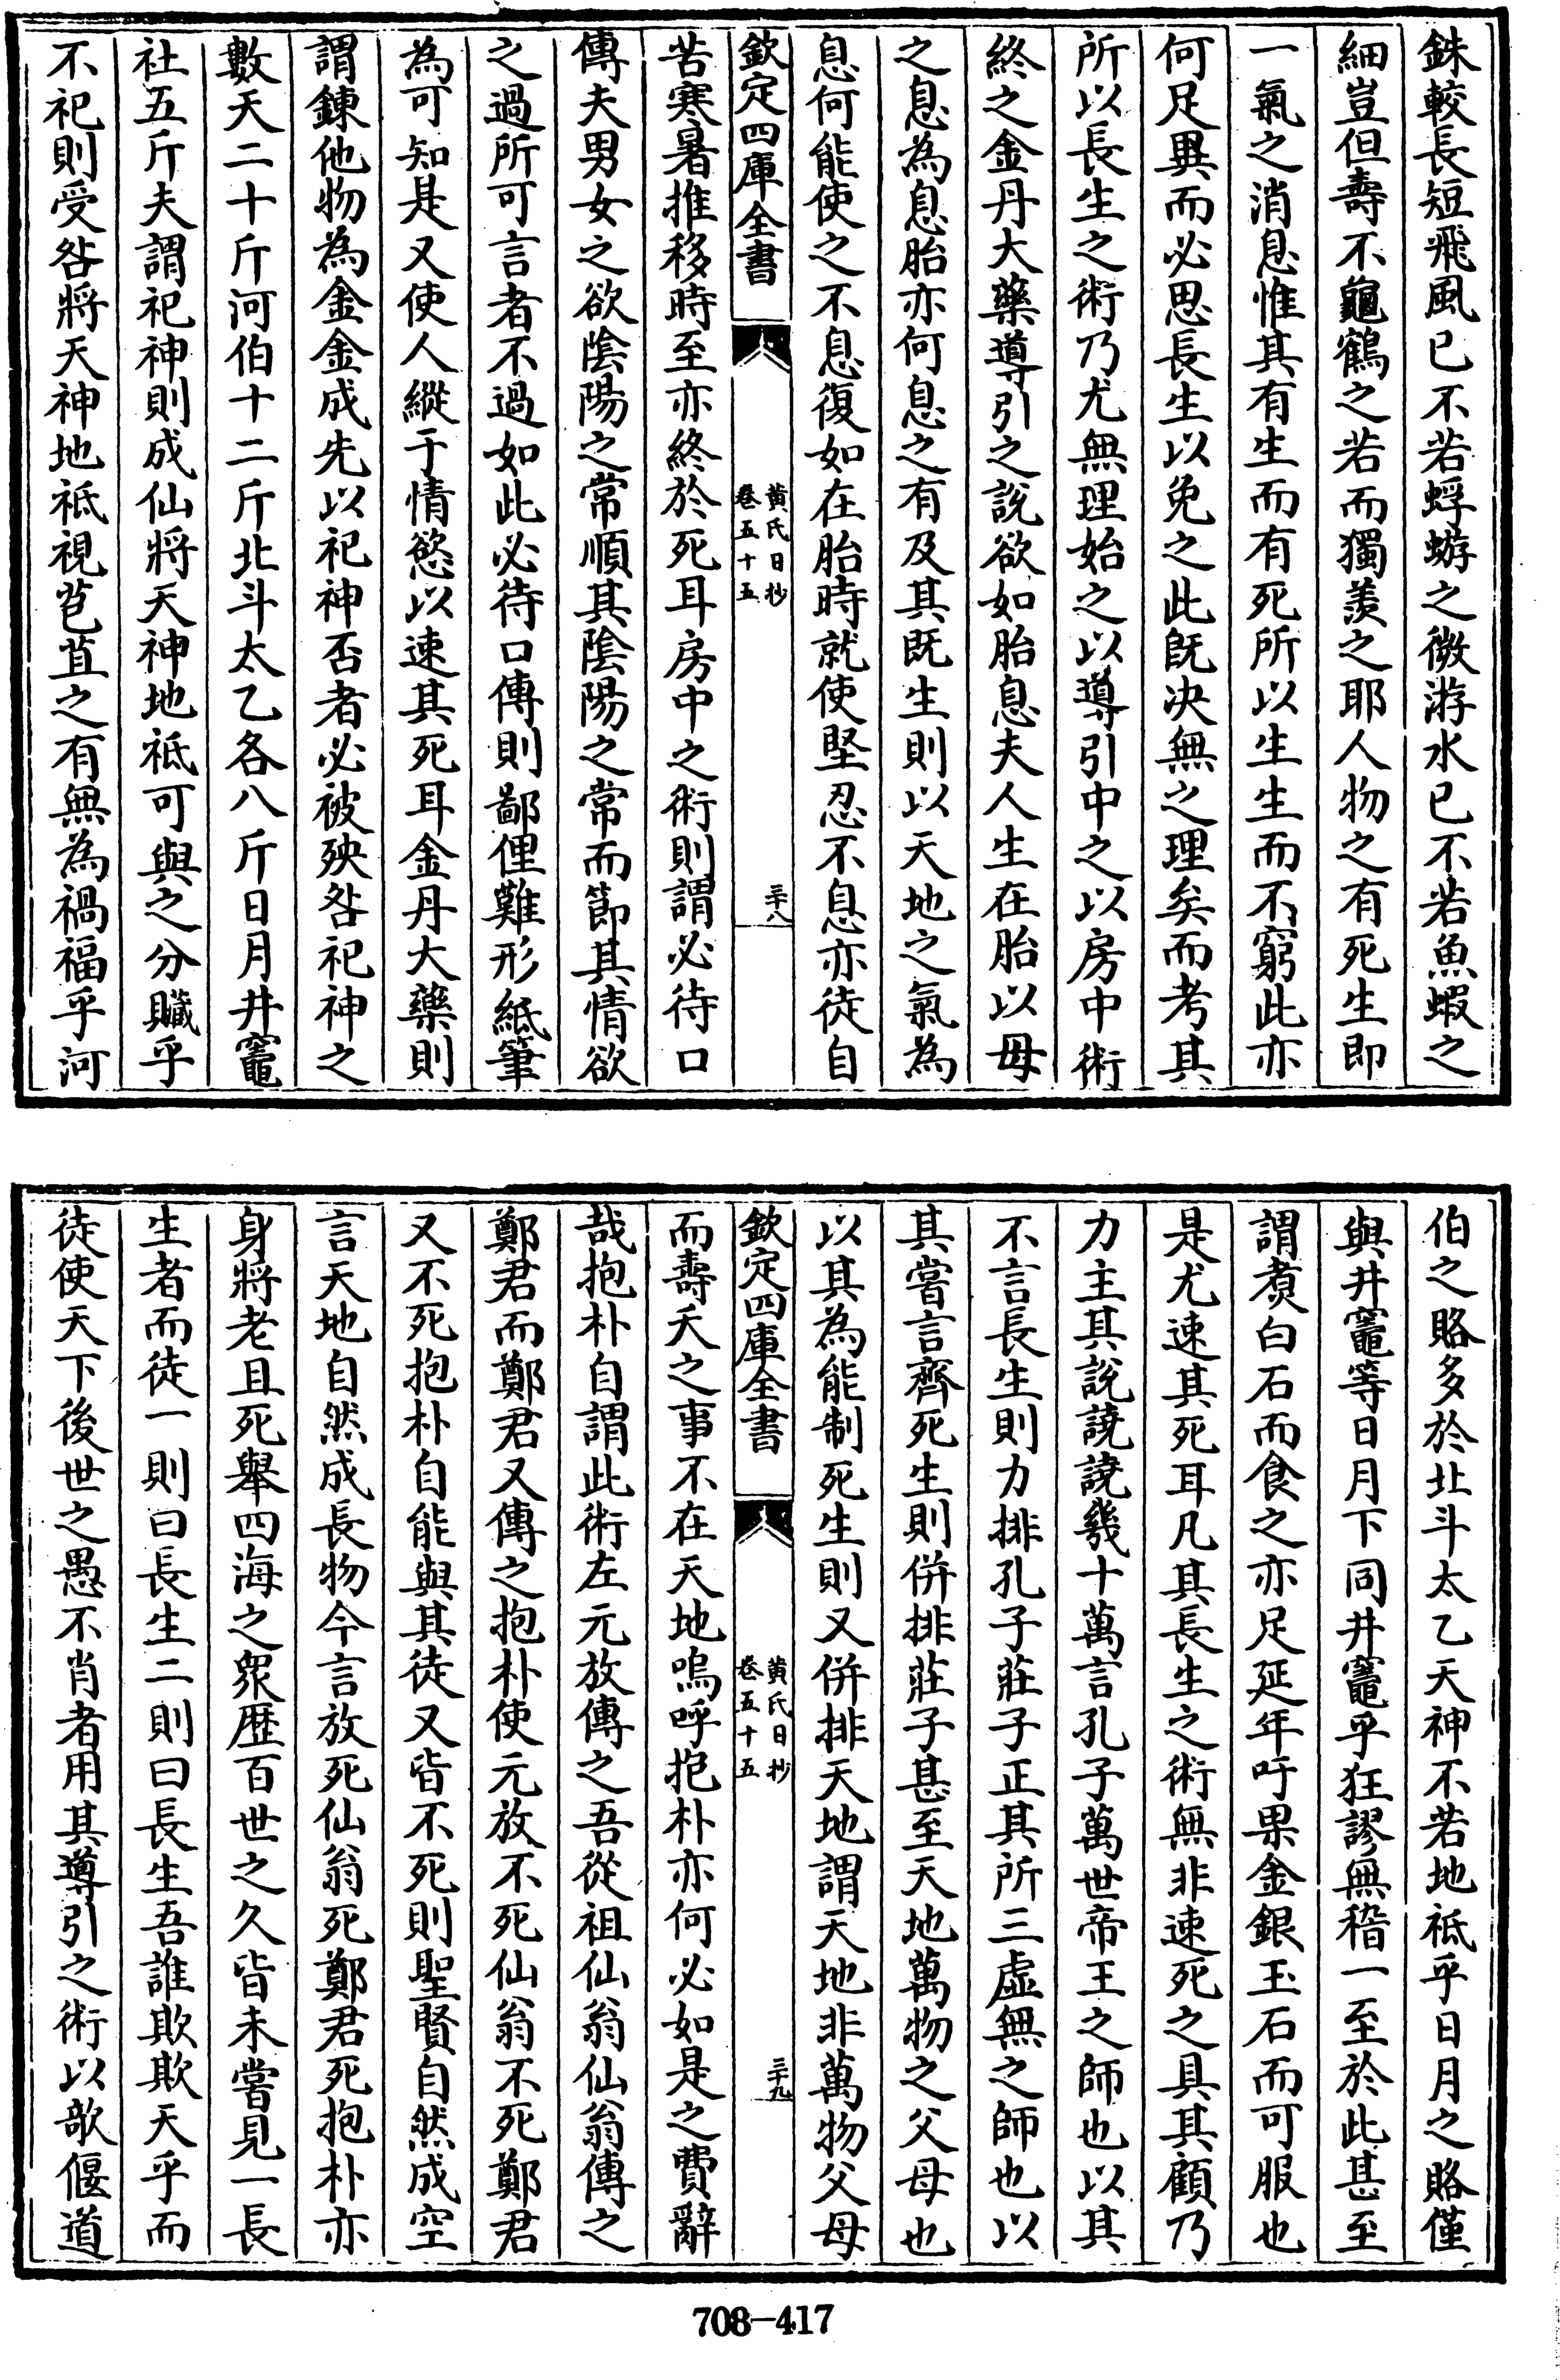 銖較長短飛風已不若蜉蝣之微游水已不若魚蝦之
細豈但壽不龜鶴之若而獨羨之耶人物之有死生即
一氣之消息惟其有生而有死所以生生而不窮此亦
何足異而必思長生以免之此既决無之理矣而考其
所以長生之術乃尤無理始之以導引中之以房中術
終之金丹大藥導引之説欲如胎息夫人生在胎以母
之息為息胎亦何息之有及其既生則以天地之氣為
息何能使之不息復如在胎時就使堅忍不息亦徒自
欽定四庫全書
黄氏日抄
卷五十五
三十八
苦寒暑推移時至亦終於死耳房中之術則謂必待口
傳夫男女之欲陰陽之常順其陰陽之常而節其情欲
之過所可言者不過如此必待口傳則鄙俚難形紙筆
為可知是又使人縱于情慾以速其死耳金丹大藥則
謂鍊他物為金金成先以祀神否者必被殃咎祀神之
數天二十斤河伯十二斤北斗太乙各八斤日月井竈
社五斤夫謂祀神則成仙將天神地祗可與之分贓乎
不祀則受咎將天神地祗視苞苴之有無為禍福乎河
伯之賂多於北斗太乙天神不若地祗乎日月之賂僅
與井竈等日月下同井竈乎狂謬無稽一至於此甚至
謂煑白石而食之亦足延年吁果金銀玉石而可服也
是尤速其死耳凡其長生之術無非速死之具其顧乃
力主其説譊譊幾十萬言孔子萬世帝王之師也以其
不言長生則力排孔子莊子正其所三虚無之師也以
其嘗言齊死生則併排莊子甚至天地萬物之父母也
以其為能制死生則又併排天地謂天地非萬物父母
欽定四庫全書
黄氏日抄
卷五十五
三十九
而壽夭之事不在天地嗚呼抱朴亦何必如是之費辭
哉抱朴自謂此術左元放傳之吾從祖仙翁仙翁傳之
鄭君而鄭君又傳之抱朴使元放不死仙翁不死鄭君
又不死抱朴自能與其徒又皆不死則聖賢自然成空
言天地自然成長物今言放死仙翁死鄭君死抱朴亦
身將老且死舉四海之衆歴百世之久皆未嘗見一長
生者而徒一則曰長生二則曰長生吾誰欺欺天乎而
徒使天下後世之愚不肖者用其導引之術以歊偃道
708—417